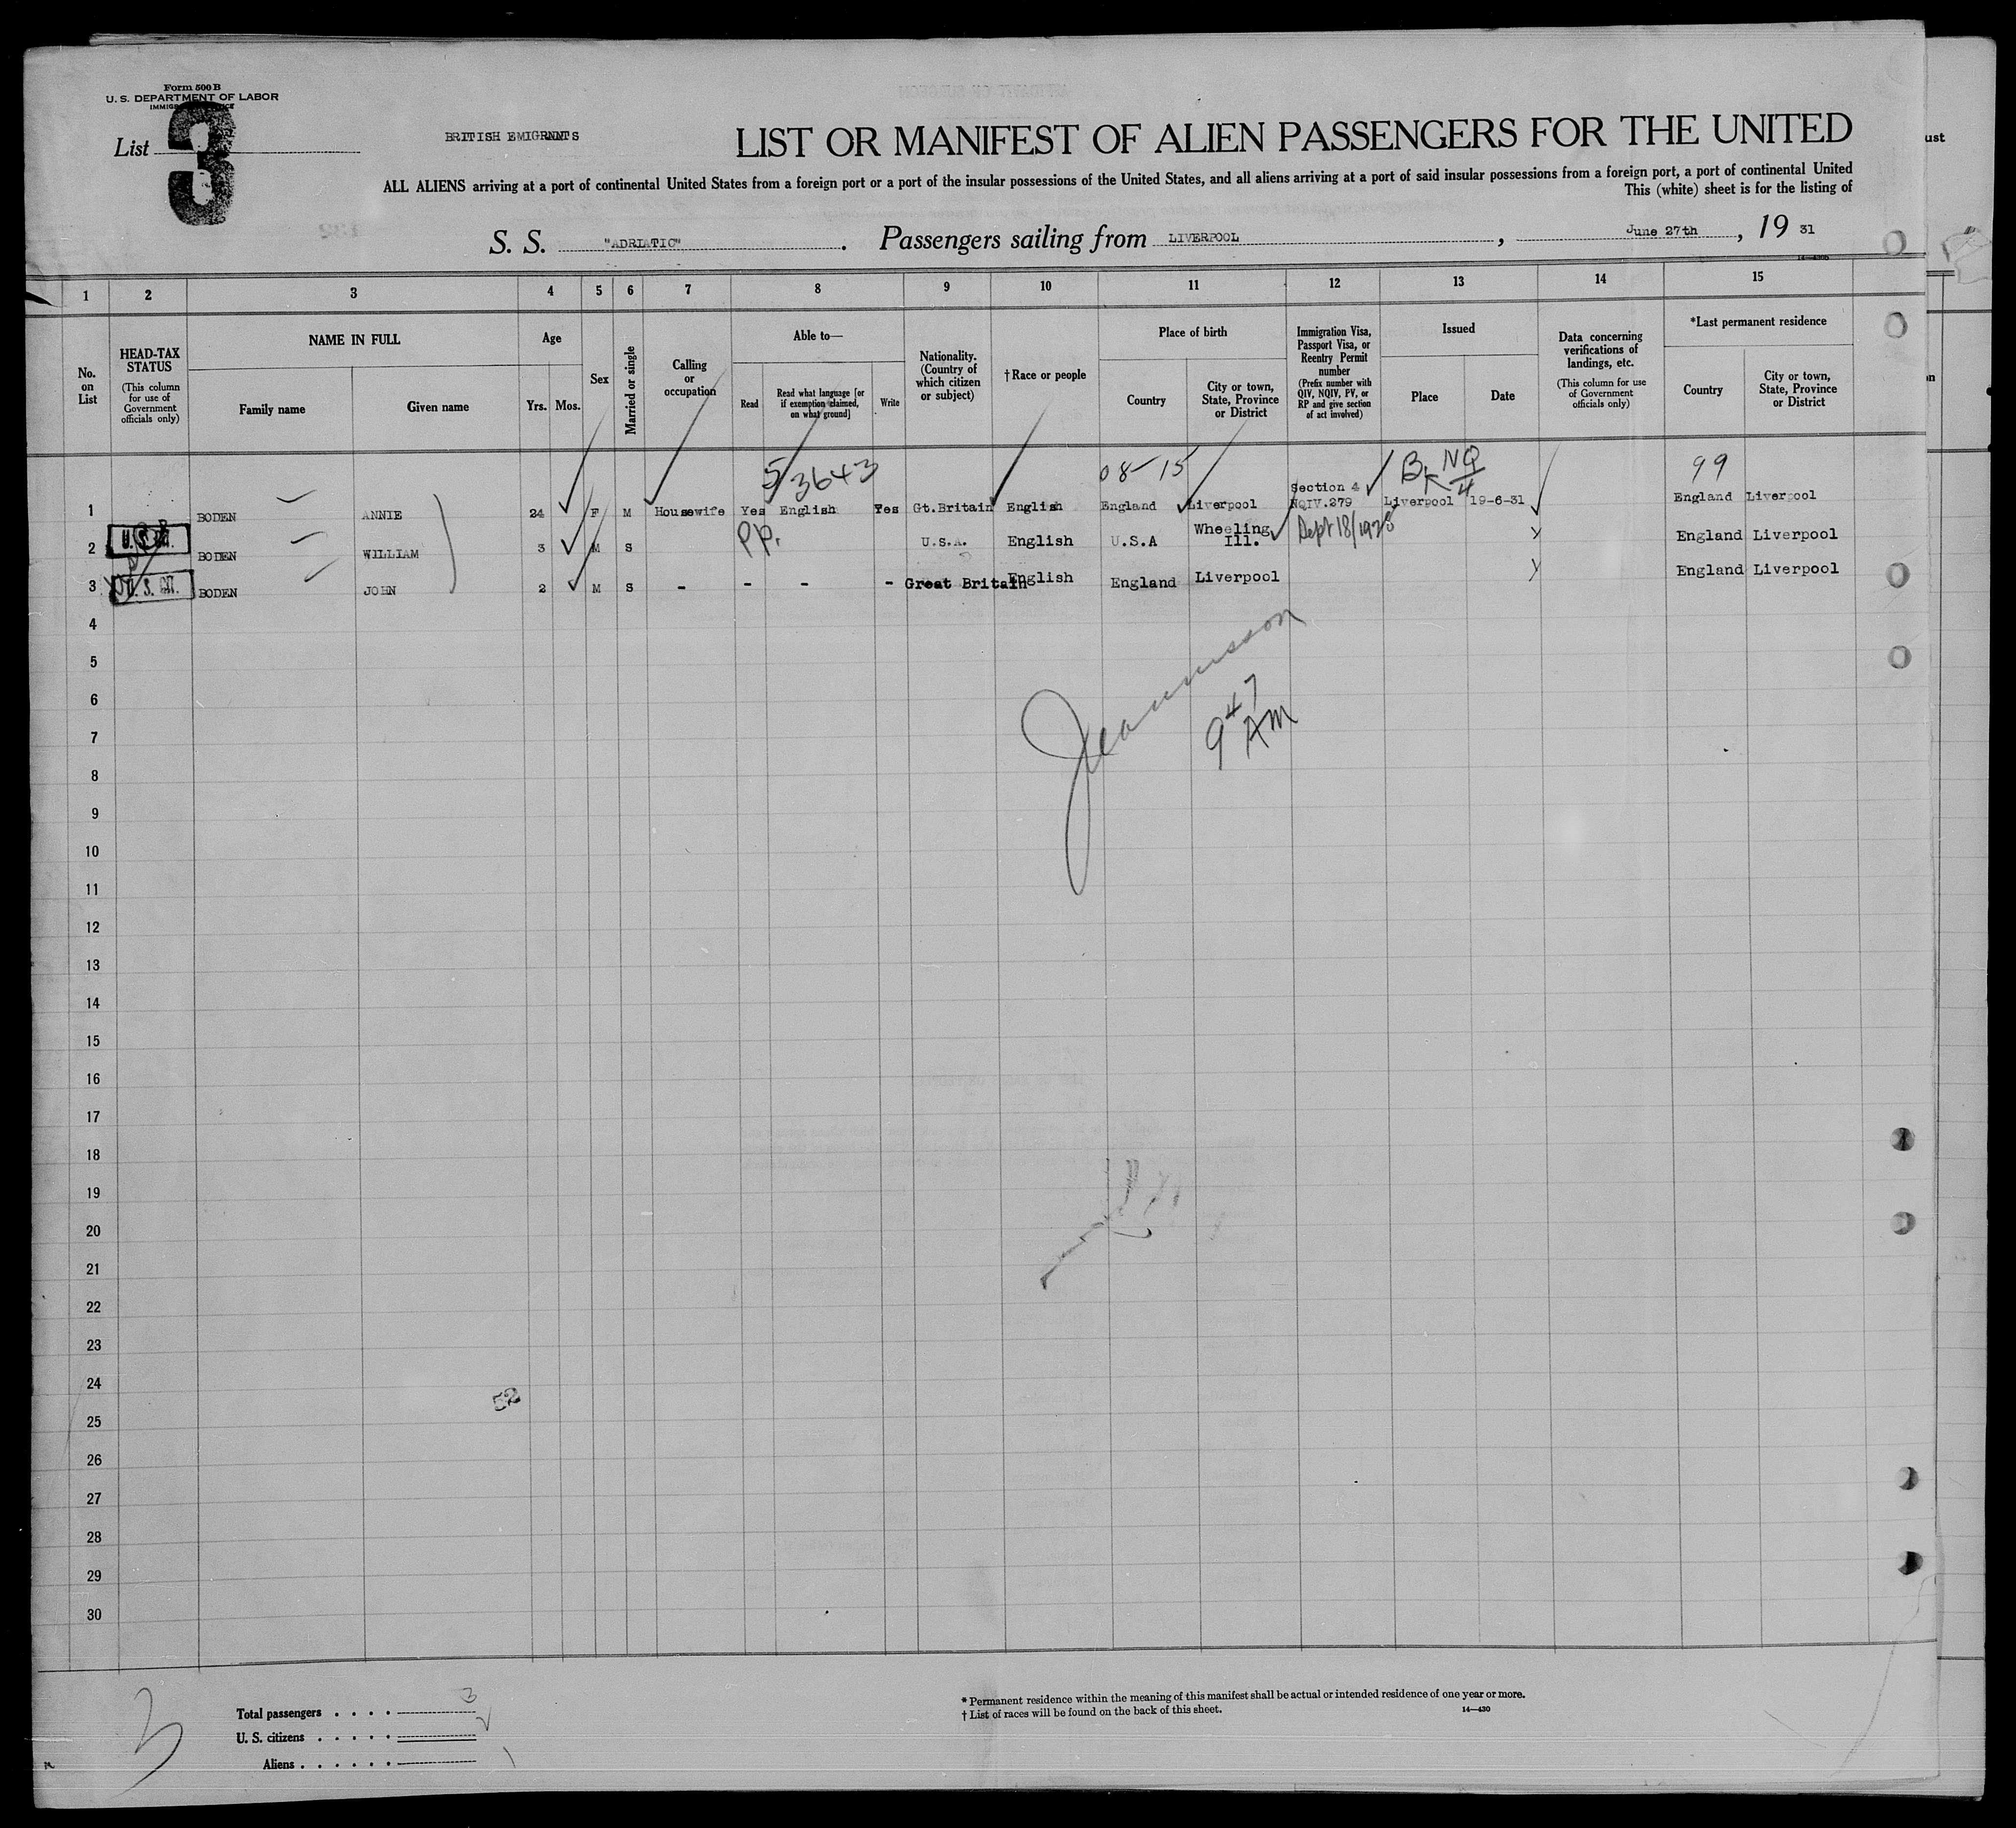 Form 500 B
U. S. DEPARTMENT OF LABOR
List 3
BRITISH EMIGRNNTS
LIST OR MANIFEST OF ALIEN PASSENGERS FOR THE UNITED
ALL ALIENS arriving at a port of continental United States from a foreign port or a port of the insular possessions of the United States, and all aliens arriving at a port of said insular possessions from a foreign port, a port of continental United
This (white) sheet is for the listing of
S. S. "ADRIATIC". Passengers sailing from LIVERPOOL, June 27th, 19 31
1 2 3 4 5 6 7 8 9 10 11 12 13 14 15
No. on List
HEAD-TAX STATUS (This column for use of Government officials only)
NAME IN FULL
Family name
Given name
Age
Yrs. Mos.
Sex
Married or single
Calling or occupation
Able to—
Read
Read what language [or if exemption claimed, on what ground]
Write
Nationality. (Country of which citizen or subject)
† Race or people
Place of birth
Country
City or town, State, Province or District
Immigration Visa, Passport Visa, or Reentry Permit number (Prefix number with QIV, NQIV, PV, or RP and give section of act involved)
Issued
Place
Date
Data concerning verifications of landings, etc. (This column for use of Government officials only)
*Last permanent residence
Country
City or town, State, Province or District
5/3643 08-15 NQ 4 99
1 BODEN ANNIE 24 F M Housewife Yes English Yes Gt.Britain English England Liverpool Section 4 NQIV.279 Liverpool 19-6-31 England Liverpool
2 BODEN WILLIAM 3 M S PP. U.S.A. English U.S.A Wheeling Ill. England Liverpool
3 BODEN JOHN 2 M S - - - - Great Britain English England Liverpool England Liverpool
4
5
6
7
9 47 AM
8
9
10
11
12
13
14
15
16
17
18
19
20
21
22
23
24
52
25
26
27
28
29
30
3
Total passengers . . . . 3
U. S. citizens . . . . .
Aliens . . . . . .
* Permanent residence within the meaning of this manifest shall be actual or intended residence of one year or more.
† List of races will be found on the back of this sheet.
14—430